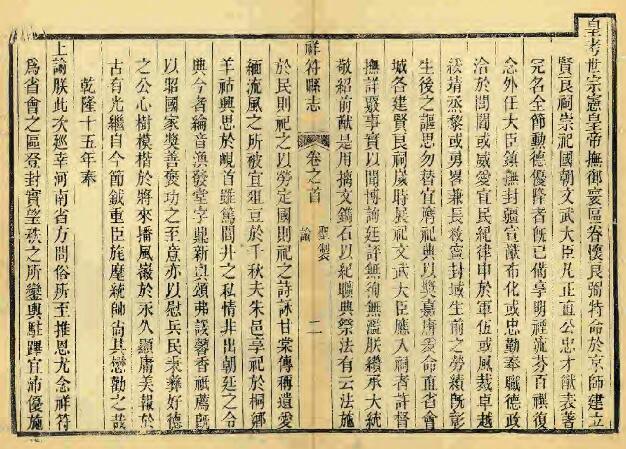 皇考世宗憲皇帝撫御寰區眷懷良弼特命於京師建立
賢良祠崇祀國朝文武大臣凡正直公忠才猷表著
完名全節勳德優隆者旣已備享明禋流芬百禩復
念外任大臣鎮撫封疆宣猷布化或忠勤奉職德政
洽於閭閻或威愛宜民紀律申於軍伍或風裁卓越
綏靖烝黎或勇畧兼長救寧封域生前之勞績旣彰
生後之謳思勿替宜膺祀典以奬嘉庸爰命直省會
城各建賢良祠歲時展祀文武大臣應入祠者許督
撫詳覈事實以聞博諭廷評無徇無濫朕纘承大統
敬紹前猷是用摛文鐫石以紀聯典祭法有云法施
祥符縣志 卷之首 聖製 諭 二
於民則祀之以勞定國則祀之詩詠甘棠傳稱遺愛
緬流風之所被宜俎豆於千秋夫朱邑享祀於桐鄉
羊祜興思於峴首雖篤閭井之私情非出朝廷之合
典今者綸音渙發堂宇鼎新貞頌弗諼馨香祗薦旣
以昭國家奬善褒功之至意亦以慰兵民秉彝好德
之公心樹模楷於將來播風徽於永久顯庸美報於
古有光繼自今節鉞重臣旄麾統帥尚其懋勸之哉
乾隆十五年奉
上諭朕此次巡幸河南省方問俗所至推恩尤念祥符
爲省會之區登封實望秩之所鑾輿駐蹕宜沛優施